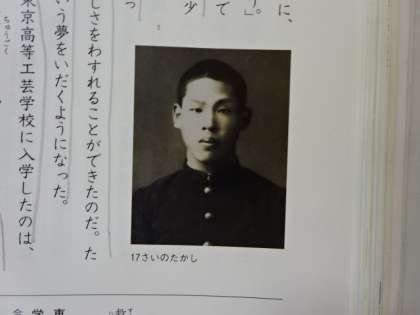 に、
」。
で
少
っ
しさをわすれることができたのだ。た
いう夢をいだくようになった。
東京高等工芸学校に入学したのは、
ちゅうごく
17さいのたかし
教